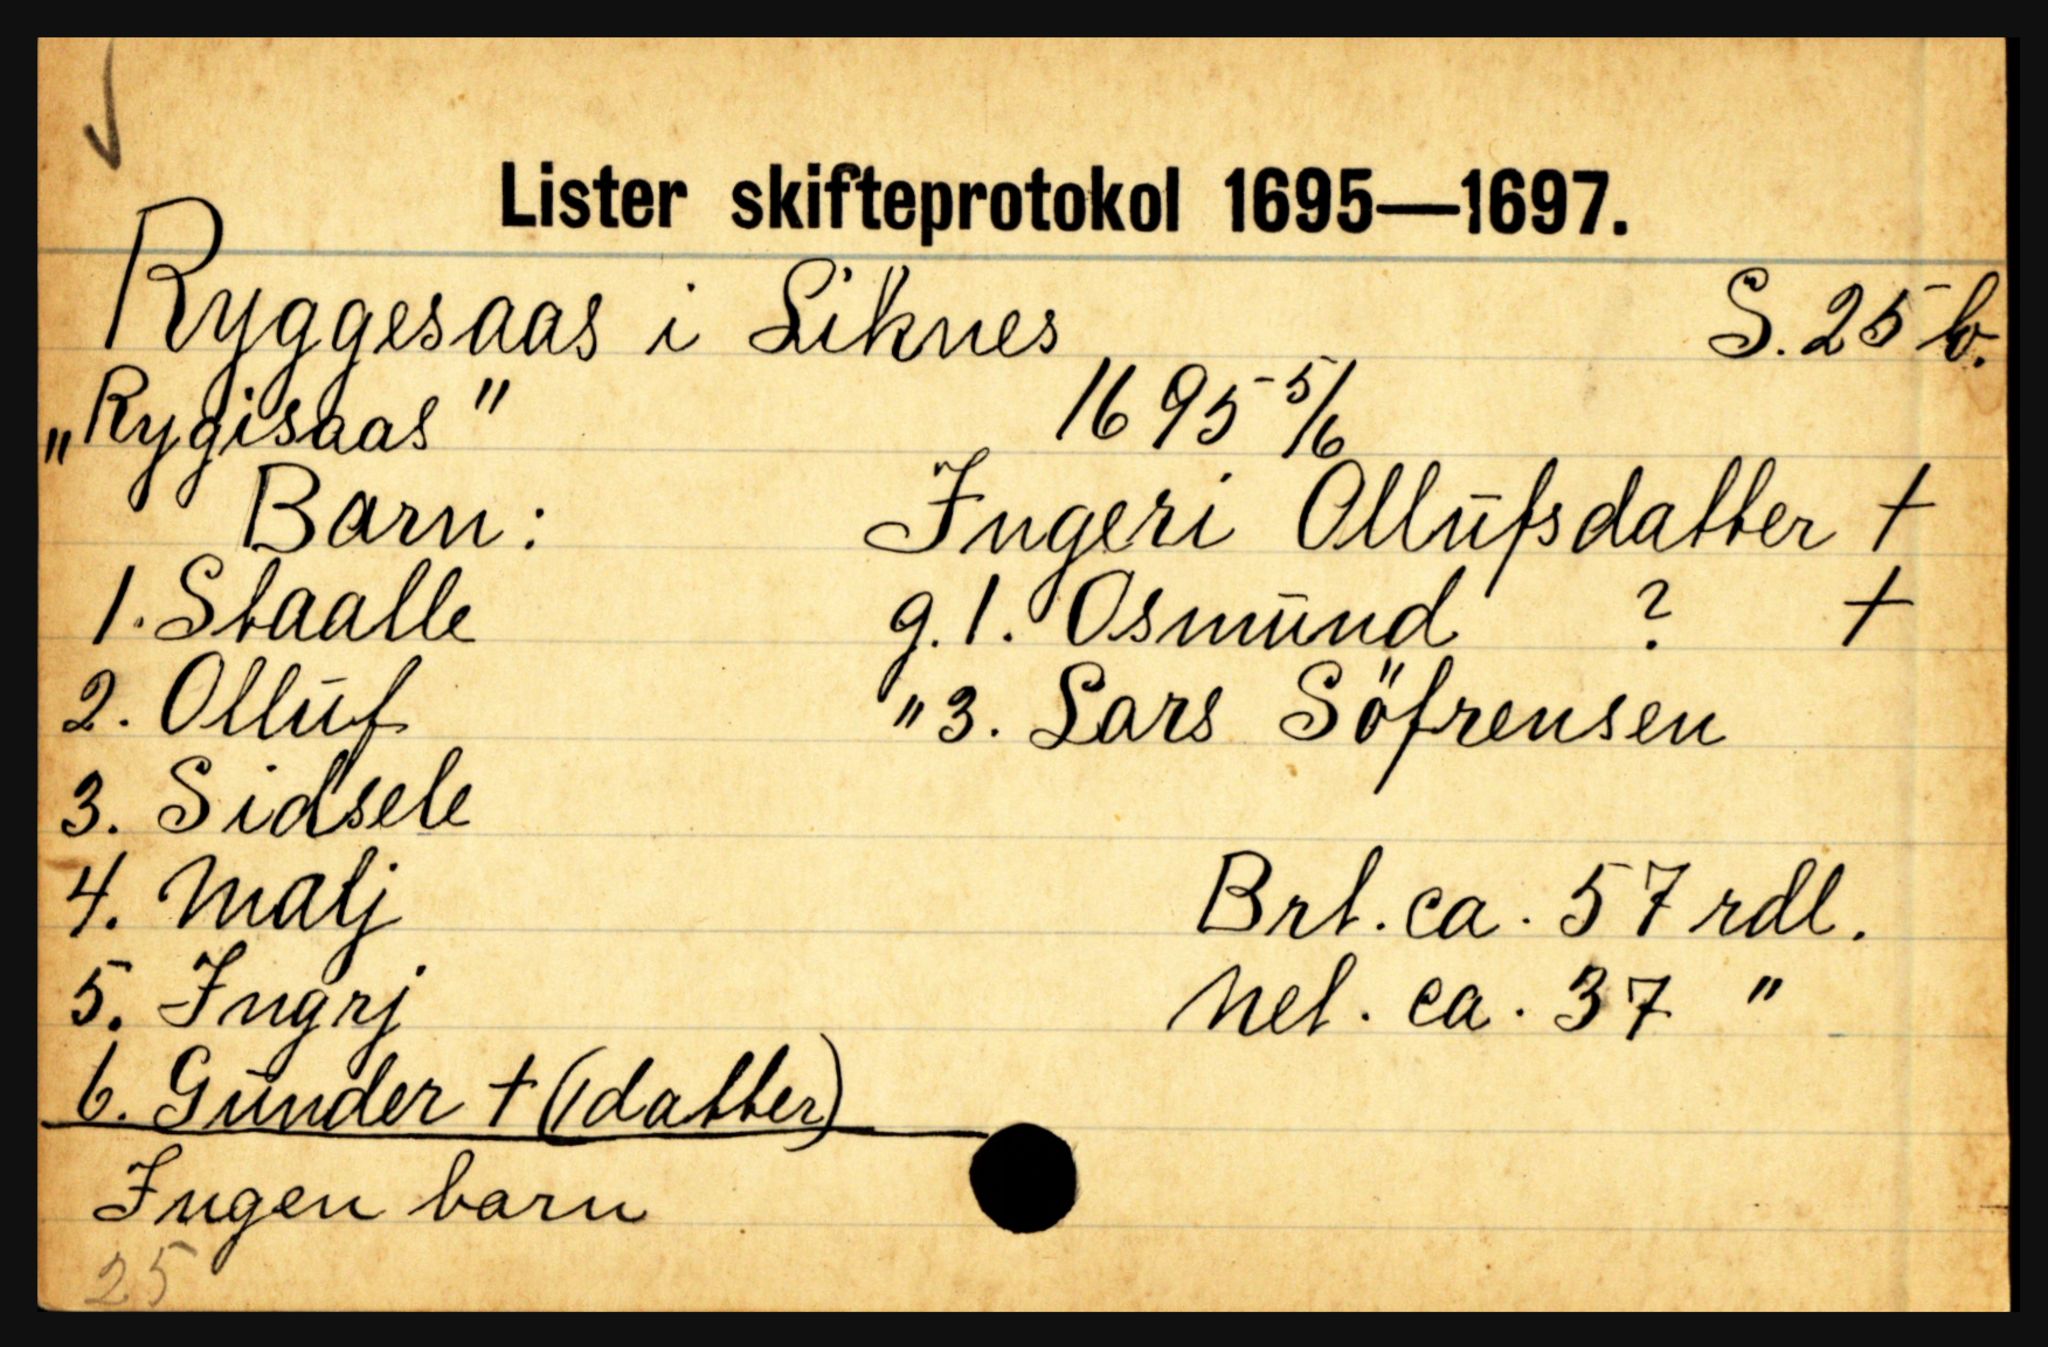 Lister skifteprotokol 1695—1697.
Ryggesaas i Liknes S. 25 b.
„Rygisaas" 1695 5/6
Barn: Ingeri Ollufsdatter †
1. Staalle g. 1. Osmund ? †
2. Olluf " 3. Lars Söfrensen
3. Sidsele
4. Malj Brt. ca. 57 rdl.
5. Ingrj Net. ca. 37 "
6. Gunder † (datter)
Ingen barn
25